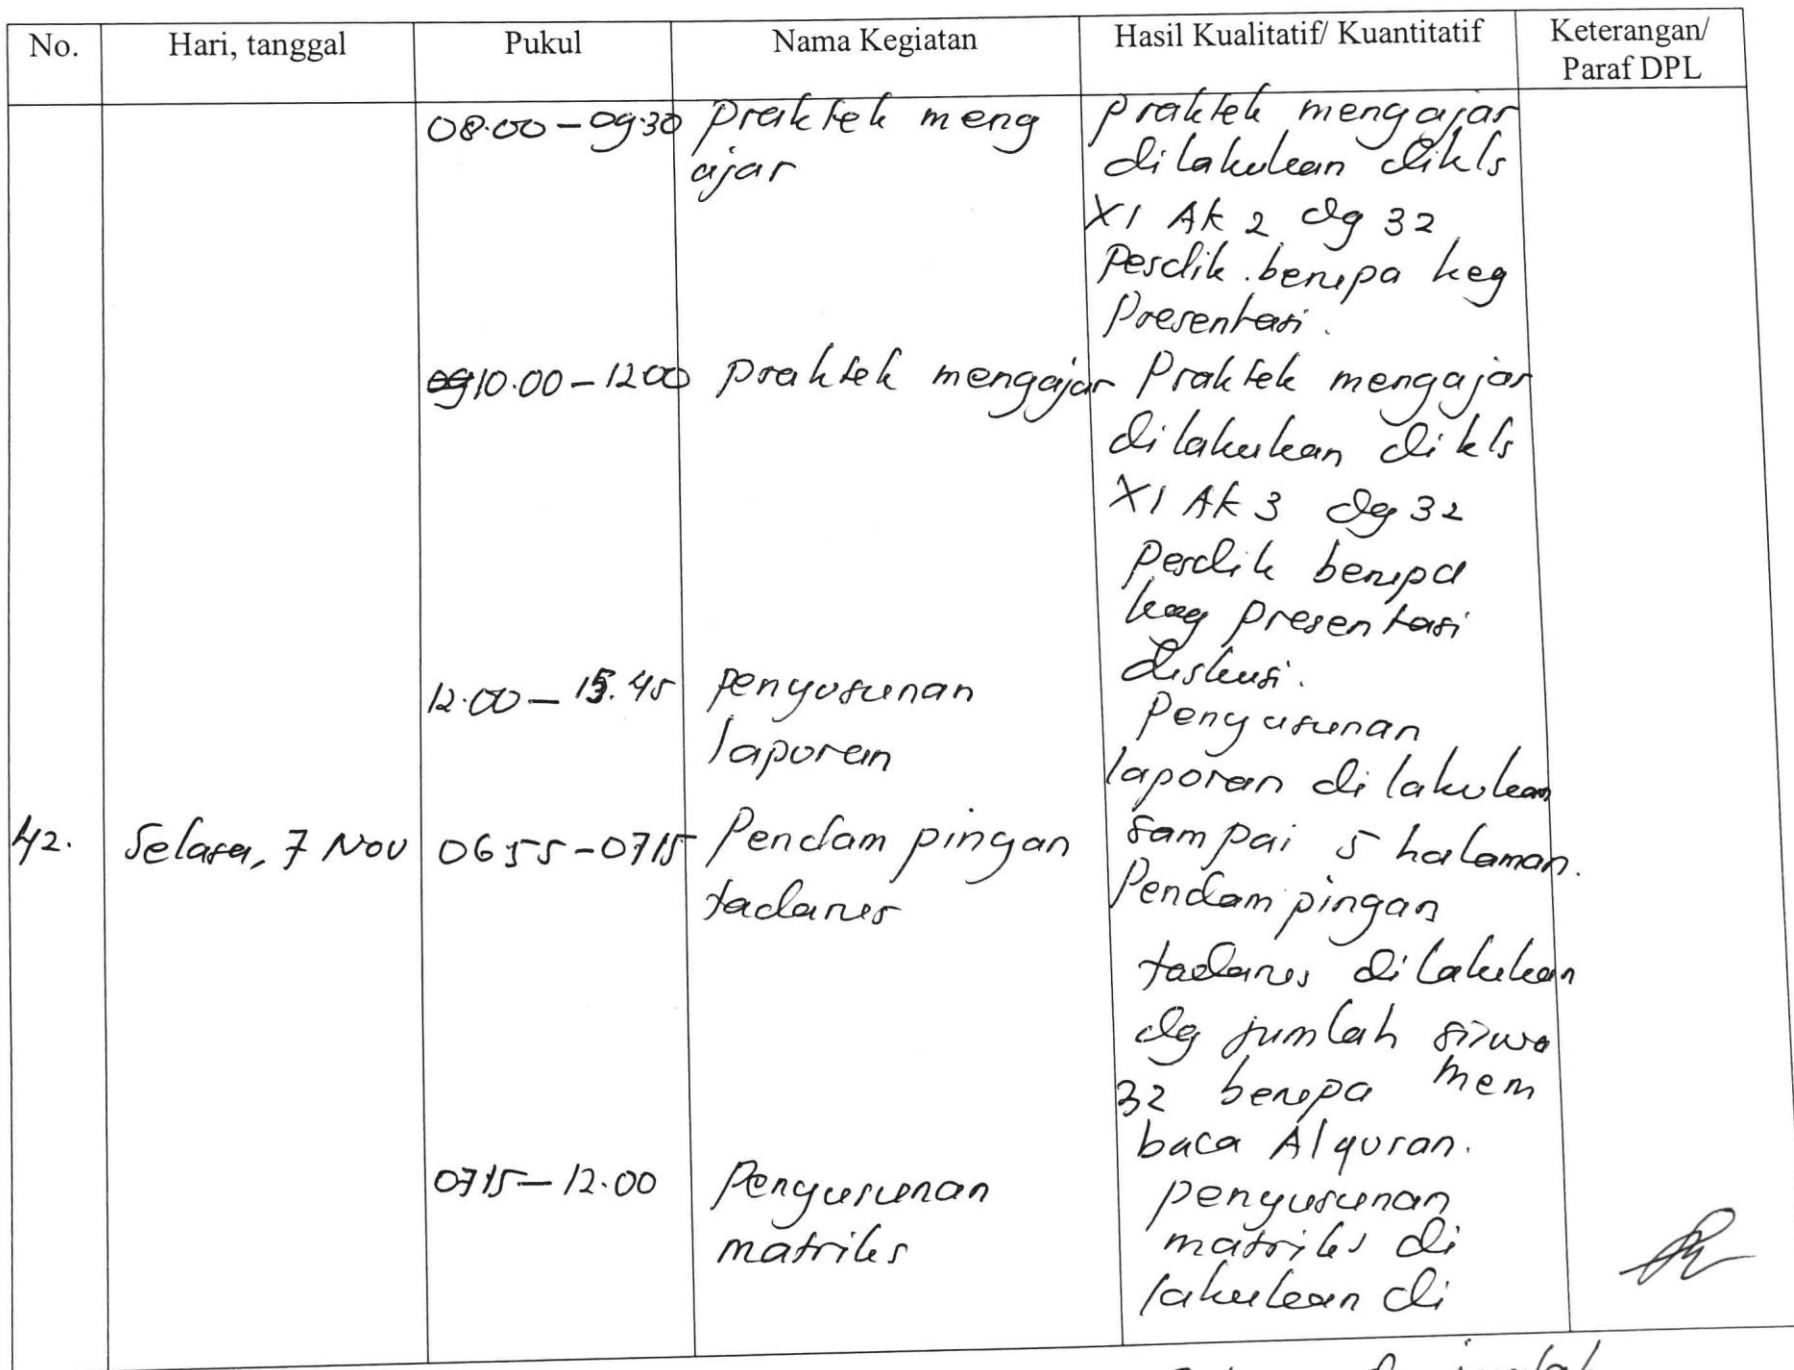 No. Hari, tanggal Pukul Nama Kegiatan Hasil Kualitatif/ Kuantitatif Keterangan/
Paraf DPL
08.00 - 09.30 praktek meng
ajar
praktek mengajar
dilakukan dikls
XI Ak 2 dg 32
Pesdik. berupa keg
Presentasi.
10.00 - 12.00 praktek mengajar
Praktek mengajar
dilakukan di kls
XI AK 3 dg 32
Pesdik berupa
keg presentasi
diskusi.
12.00 - 15.45 penyusunan
laporan
Penyusunan
laporan dilakukan
sampai 5 halaman.
42. Selasa, 7 Nov 06 55 - 07 15 Pendampingan
tadarus
Pendampingan
tadarus dilakukan
dg jumlah siswa
32 berupa mem
baca Alquran.
07 15 - 12.00 Penyusunan
matriks
penyusunan
matriks di
lakukan di